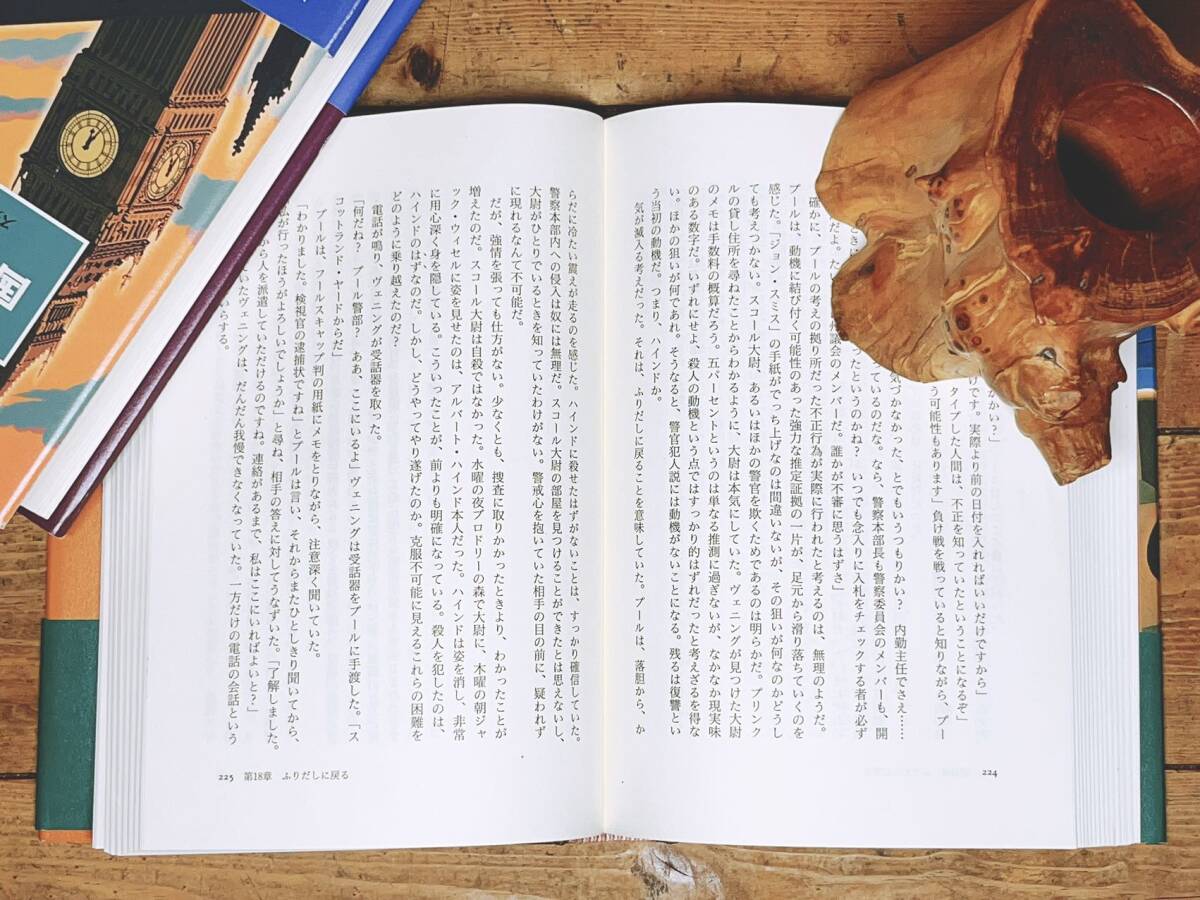 かい？」
けです。実際より前の日付を入れればいいだけですから」
タイプした人間は、不正を知っていたということになるぞ」
う可能性もあります」負け戦を戦っていると知りながら、プー
気づかなかった、とでもいうつもりかい？　内勤主任でさえ……
ているのだな。なら、警察本部長も警察委員会のメンバーも、開
ったというのかね？　いつでも念入りに入札をチェックする者が必ず
だよ。 州議会のメンバーだ。誰かが不審に思うはずさ」
確かに、プールの考えの拠り所だった不正行為が実際に行われたと考えるのは、無理のようだ。
プールは、動機に結び付く可能性のあった強力な推定証拠の一片が、足元から滑り落ちていくのを
感じた。「ジョン・スミス」の手紙がでっち上げなのは間違いないが、その狙いが何なのかどうし
ても考えつかない。スコール大尉、あるいはほかの警官を欺くためであるのは明らかだ。ブリンク
ルの貸し住所を尋ねたことからわかるように、大尉は本気にしていた。ヴェニングが見つけた大尉
のメモは手数料の概算だろう。五パーセントというのは単なる推測に過ぎないが、なかなか現実味
のある数字だ。いずれにせよ、殺人の動機という点ではすっかり的はずれだったと考えざるを得な
い。ほかの狙いが何であれ。そうなると、警官犯人説には動機がないことになる。残るは復讐とい
う当初の動機だ。つまり、ハインドか。
気が滅入る考えだった。それは、ふりだしに戻ることを意味していた。プールは、落胆から、か
224
らだに冷たい震えが走るのを感じた。ハインドに殺せたはずがないことは、すっかり確信していた。
警察本部内への侵入は奴には無理だ。スコール大尉の部屋を見つけることができたとは思えないし、
大尉がひとりでいるときを知っていたわけがない。警戒心を抱いていた相手の目の前に、疑われず
に現れるなんて不可能だ。
だが、強情を張っても仕方がない。少なくとも、捜査に取りかかったときより、わかったことが
増えたのだ。スコール大尉は自殺ではなかった。水曜の夜ブロドリーの森で大尉に、木曜の朝ジャ
ック・ウィセルに姿を見せたのは、アルバート・ハインド本人だった。ハインドは姿を消し、非常
に用心深く身を隠している。こういったことが、前よりも明確になっている。殺人を犯したのは、
ハインドのはずなのだ。しかし、どうやってやり遂げたのか。克服不可能に見えるこれらの困難を
どのように乗り越えたのだ？
電話が鳴り、ヴェニングが受話器を取った。
「何だね？　プール警部？　ああ、ここにいるよ」ヴェニングは受話器をプールに手渡した。「ス
コットランド・ヤードからだ」
プールは、フールスキャップ判の用紙にメモをとりながら、注意深く聞いていた。
「わかりました。検視官の逮捕状ですね」とプールは言い、それからまたひとしきり聞いてから、
「私が行ったほうがよろしいでしょうか」と尋ね、相手の答えに対してうなずいた。「了解しました。
から人を派遣していただけるのですね。連絡があるまで、私はここにいればよいと？」
いたヴェニングは、だんだん我慢できなくなっていた。一方だけの電話の会話という
いらする。
225　第18章　ふりだしに戻る